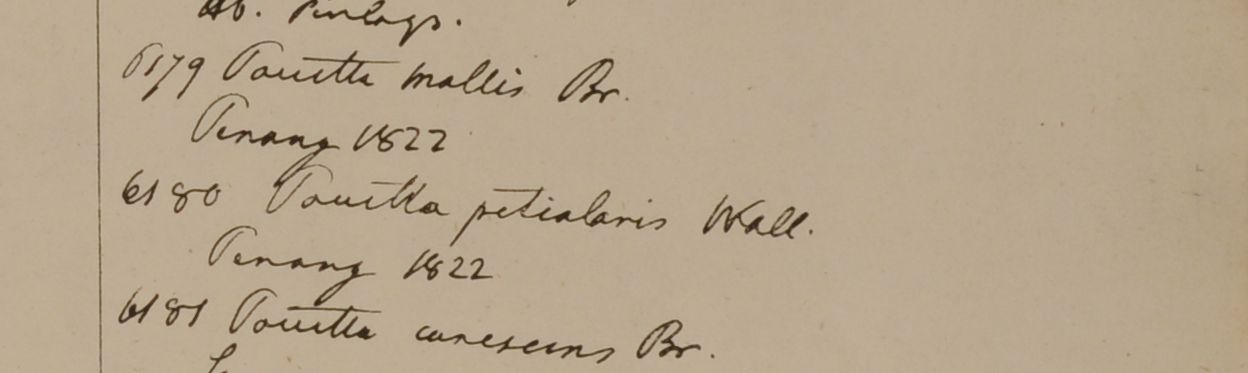 Hb. Finlays.
6179 Pavetta mollis Br.
Penang 1822
6180 Pavetta petiolaris Wall.
Penang 1822
6181 Pavetta canescens Br.